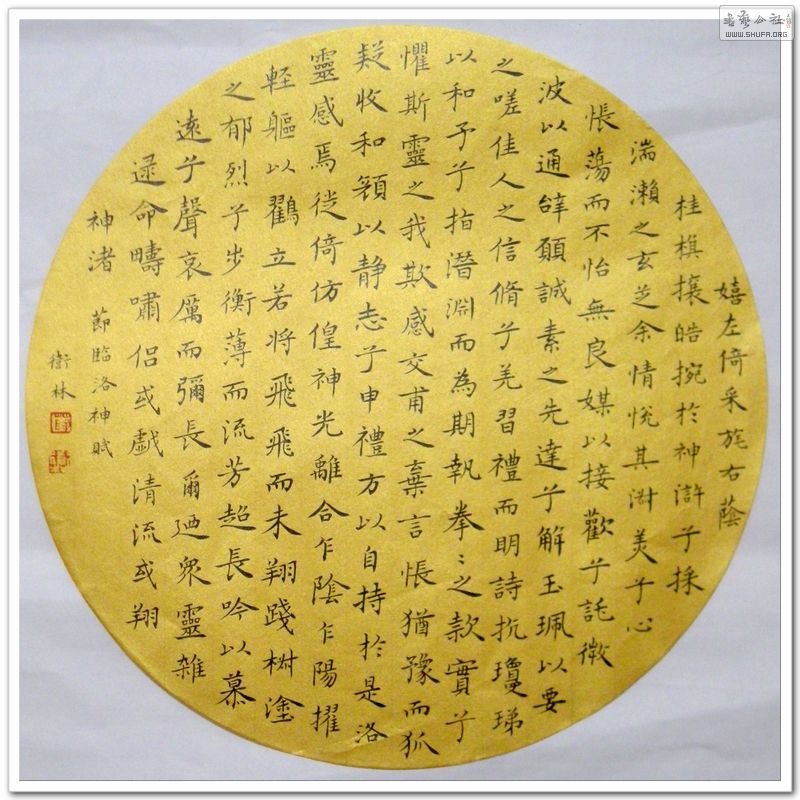 嬉左倚采旄右蔭
桂旗攘皓捥於神滸兮採
湍瀨之玄芝余情悅其淑美兮心
悵蕩而不怡無良媒以接歡兮託微
波以通辝願誠素之先達兮解玉珮以要
之嗟佳人之信脩兮羌習禮而明詩抗瓊珶
以和予兮指潛淵而為期執拳〻之款實兮
懼斯靈之我欺感交甫之棄言悵猶豫而狐
疑收和顏以静志兮申禮方以自持於是洛
靈感焉徙倚仿偟神光離合乍陰乍陽擢
輕軀以鸖立若將飛飛而未翔踐椒塗
之郁烈兮步衡薄而流芳超長吟以慕
遠兮聲哀厲而彌長爾迺眾靈雜
遝命疇嘯侶或戲清流或翔
神渚 節臨洛神賦
衛林
書藝公社
WWW.SHUFA.ORG